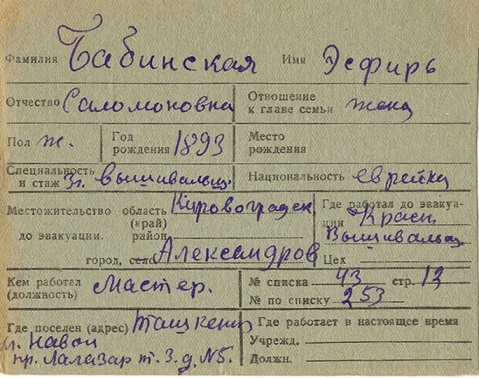 Фамилия Бабинская Имя Эсфирь
Отчество Саломоновна Отношение к главе семьи жена
Пол ж. Год рождения 1893 Место рождения
Специальность и стаж 3г. вышивальщ. Национальность еврейка
Местожительство область Кировоградск Где работал до эвакуа-
(край) ции Красн.
до эвакуации. район Вышивальщ
город, село Александров Цех
Кем работал (должность) Мастер. № списка 43 стр. 13
№ по списку 253
Где поселен (адрес) Ташкент Где работает в настоящее время
Навои Учрежд.
пр. Лалазар т. 3. д. №5. Должн.